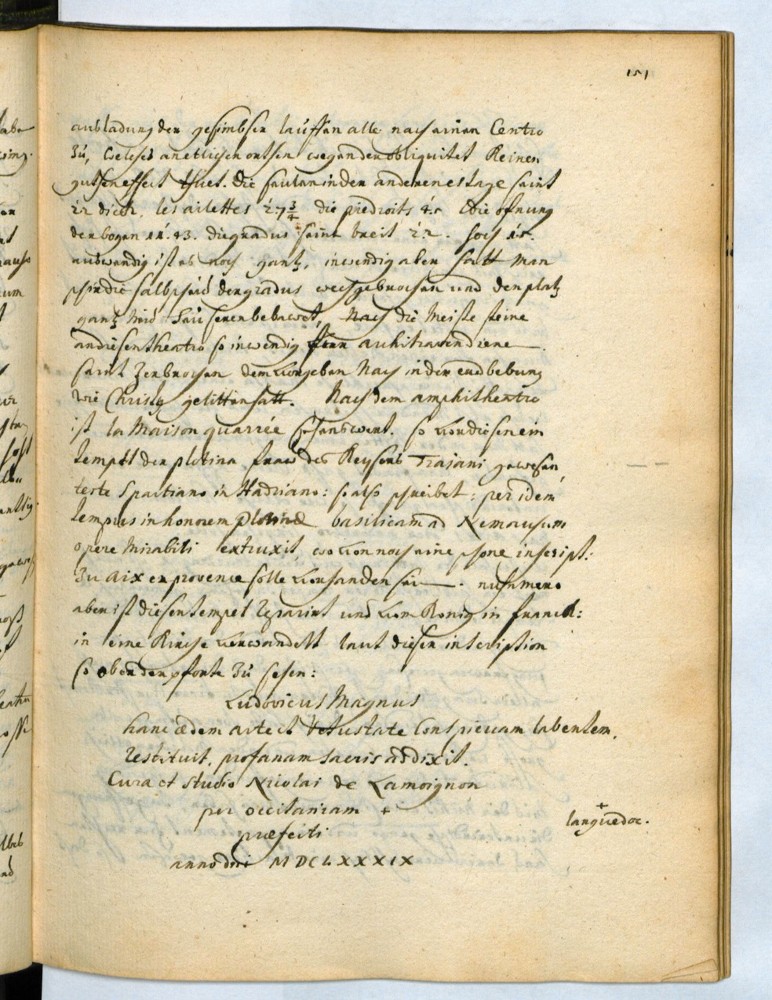 151
ausladung der gesimbser lauffen alle nach einen Centro
zu, welches an etlichen orthen wegen der obliquitet Keinen
guthen effect thuet. die saulen in der anderen estage seint
22 dick. les ailettes 27 3/4 die piedroits 4. die ofnung
der bogen 11. 43. die gradus seint breit 22. hoch 15.
auswendig ist es noch gantz, inwendig aber hatt man
die gradus weegebrochen und den platz
gantz mit heusseren bebawet, Nach die Meiste steine
an diesen theatro so inwendig architraven diene
seint zerbrochen dem vorgeben Nach in der erdbebung
wie Christus gelitten hatt. Nach dem amphitheatro
ist la Maison quarrée sehenswert. so vor diesen ein
tempel der plotina fraw des Keysers Trajani gewesen,
teste Spartiano in Hadriano: so also schreibet: per idem
tempus in honorem plotinæ basilicam ad Nemausum
opere Mirabili extruxit, wovon noch eine schöne inscript:
zu aix en provence solle vorhanden sein. nuhmero
aber ist dieser tempel reparirt und vom König in franck:
in eine Kirche verwandelt laut dieser inscription
so ob der pforte zu sehen:
Ludovicus Magnus
hanc ædem arte et Vetustate Conspicuam labentem,
restituit, profanam sacris addixit.
Cura et studio Nicolai de Lamoignon
per occitaniam +
præfecti
anno dni MDCLXXXIX
+
languedoc.